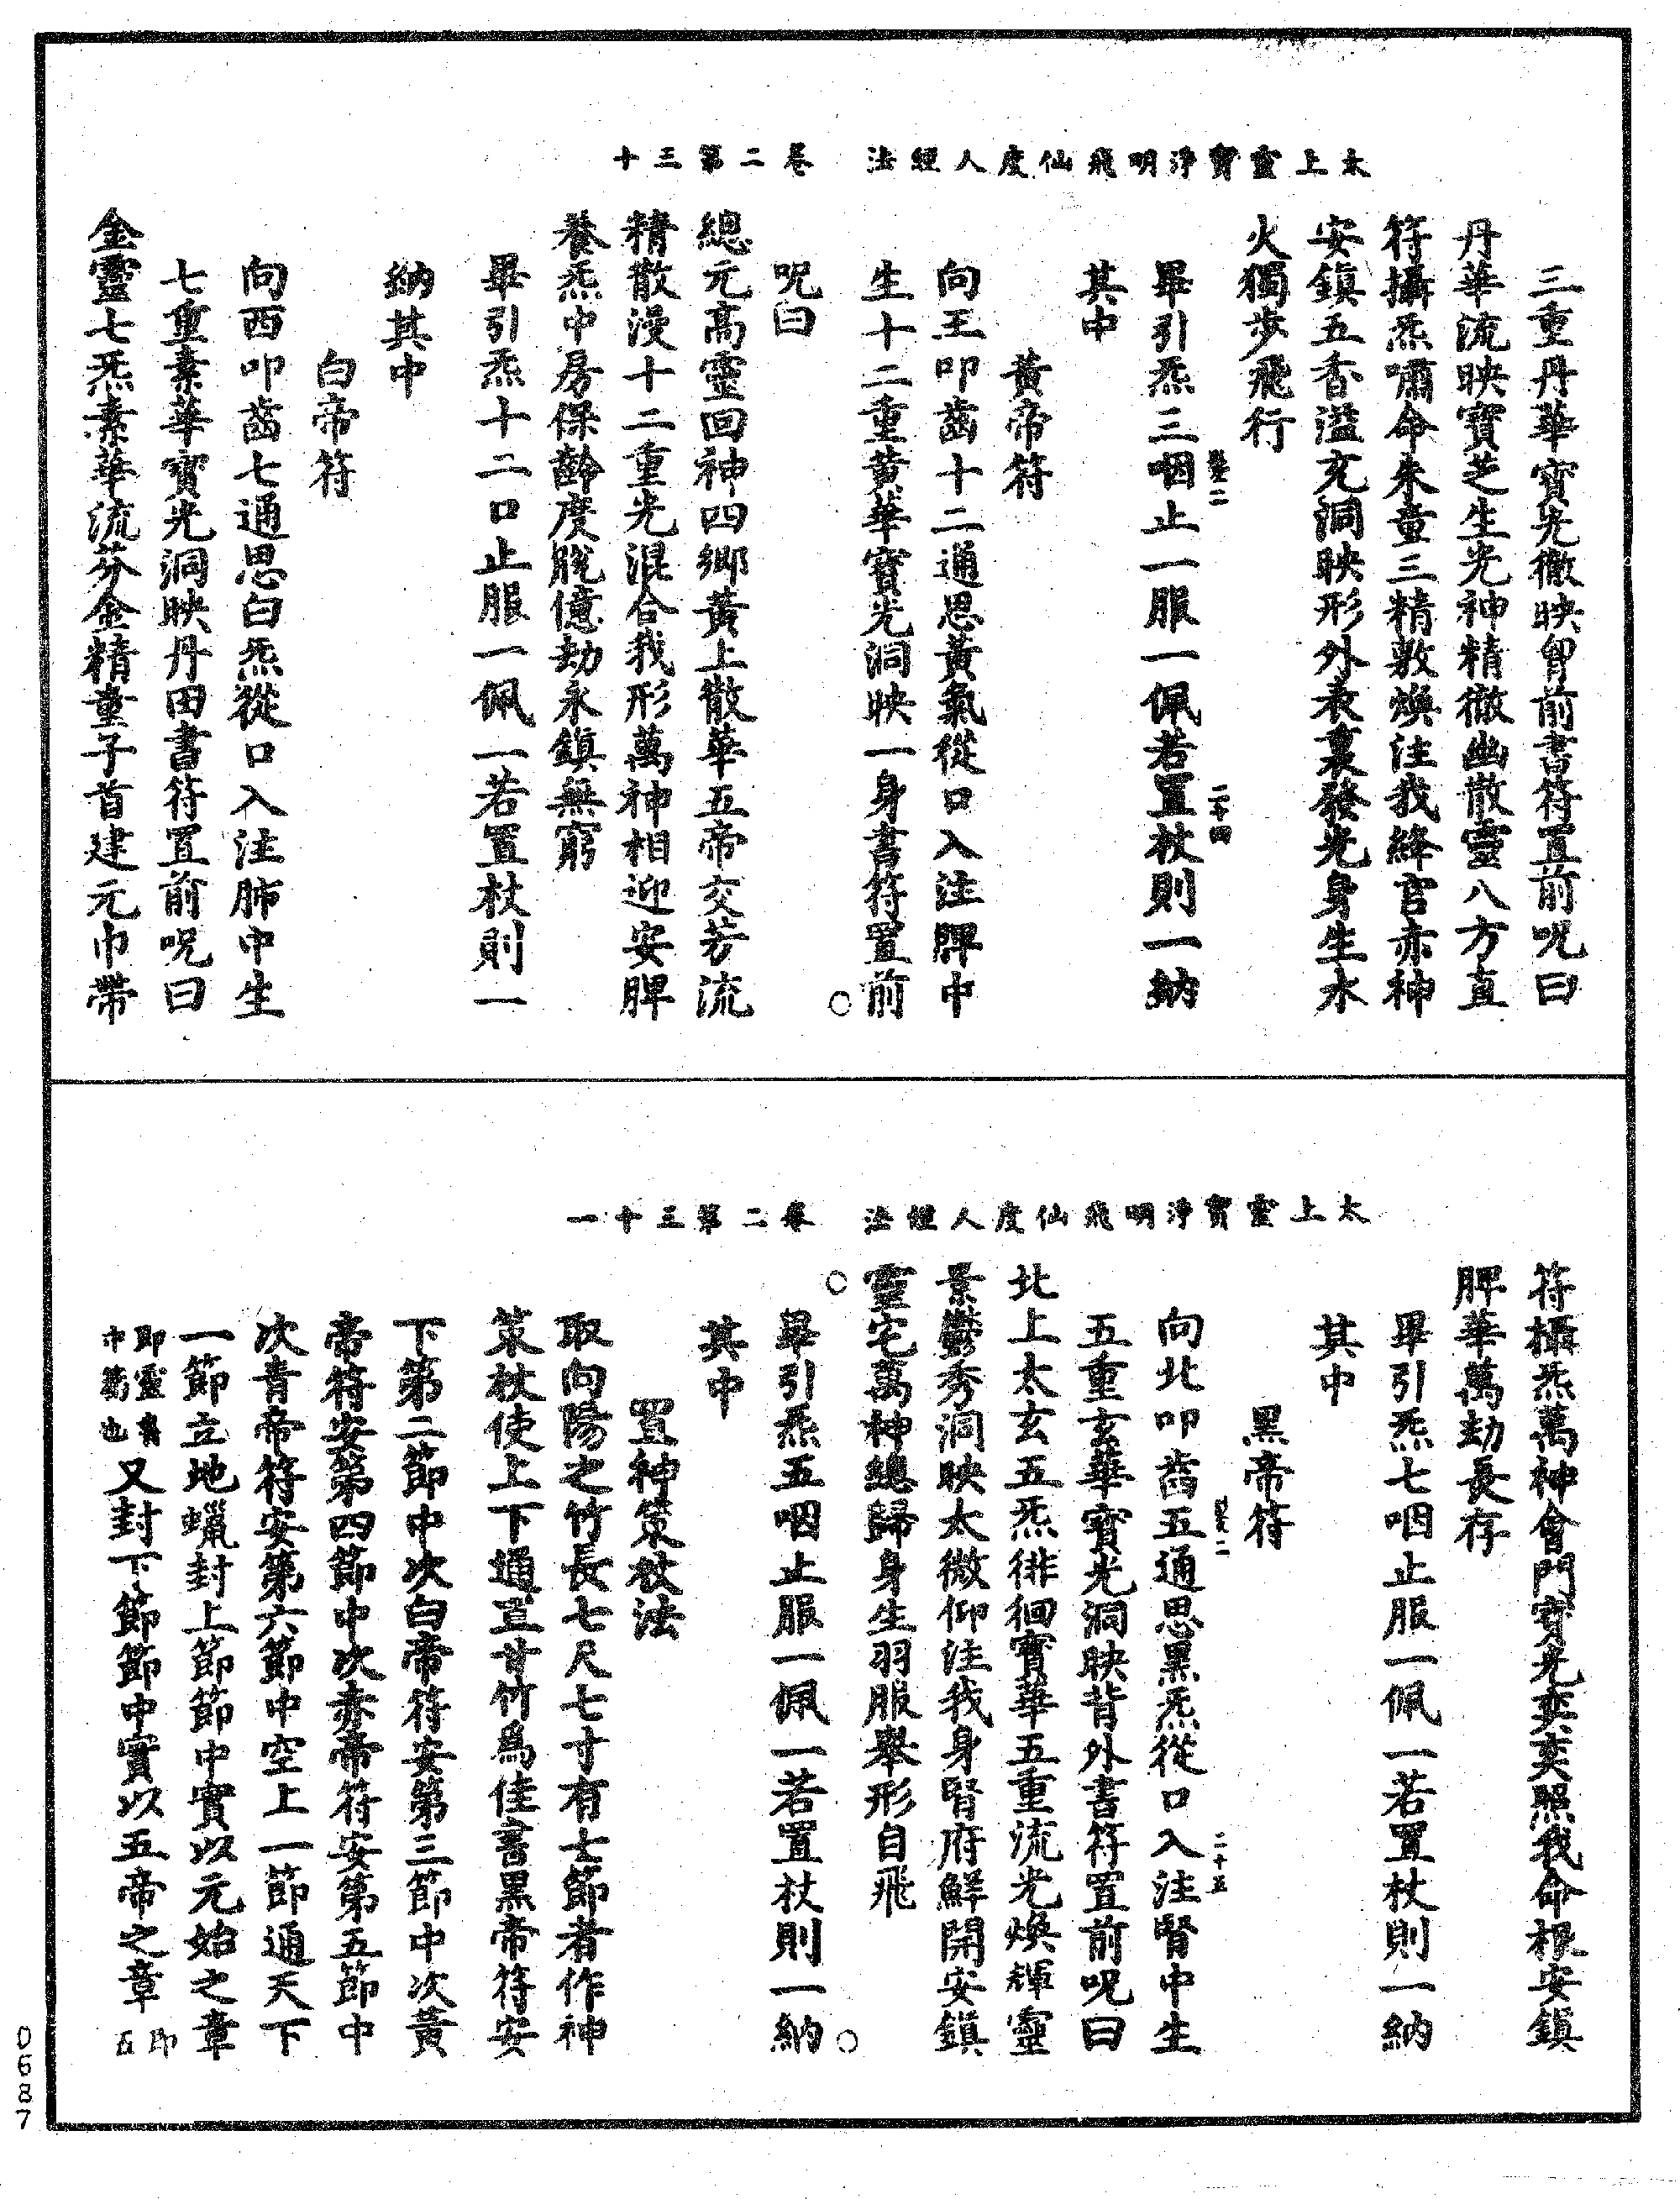 太上靈寶淨明飛仙度人經法　卷二第三十
三重丹華寶光徹映胷前書符置前呪曰
丹華流映寶芝生光神精徹幽散靈八方直
符攝炁嘯命朱童三精敷煥注我絳宮赤神
安鎮五香溢充洞映形外表裏發光身生水
火獨步飛行
畢引炁三咽止一服一佩若置杖則一納
二十四
其中
黃帝符
向王叩齒十二通思黃氣從口入注脾中
生十二重黃華寶光洞映一身書符置前
呪曰
總元高靈回神四鄉黃上散華五帝交芳流
精散漫十二重光混合我形萬神相迎安脾
養炁中房保齡度脫億劫永鎮無窮
畢引炁十二口止服一佩一若置杖則一
納其中
白帝符
向西叩齒七通思白炁從口入注肺中生
七重素華寶光洞映丹田書符置前呪曰
金靈七炁素華流芬金精童子首建元巾帶
太上靈寶淨明飛仙度人經法　卷二第三十一
符攝炁萬神會門寶光奕奕照我命根安鎮
脾華萬劫長存
畢引炁七咽止服一佩一若置杖則一納
其中
黑帝符
向北叩齒五通思黑炁從口入注腎中生
二十五
五重玄華寶光洞映背外書符置前呪曰
北上太玄五炁徘徊寶華五重流光煥輝靈
景鬱秀洞映太微仰注我身腎府鮮開安鎮
靈宅萬神總歸身生羽服舉形自飛
畢引炁五咽止服一佩一若置杖則一納
其中
置神策杖法
取向陽之竹長七尺七寸有七節者作神
策杖使上下通直甘竹爲佳書黑帝符安
下第二節中次白帝符安第三節中次黃
帝符安第四節中次赤帝符安第五節中
次青帝符安第六節中空上一節通天下
一節立地蠟封上節節中實以元始之章
即靈書中篇也又封下節節中實以五帝之章即五
0687